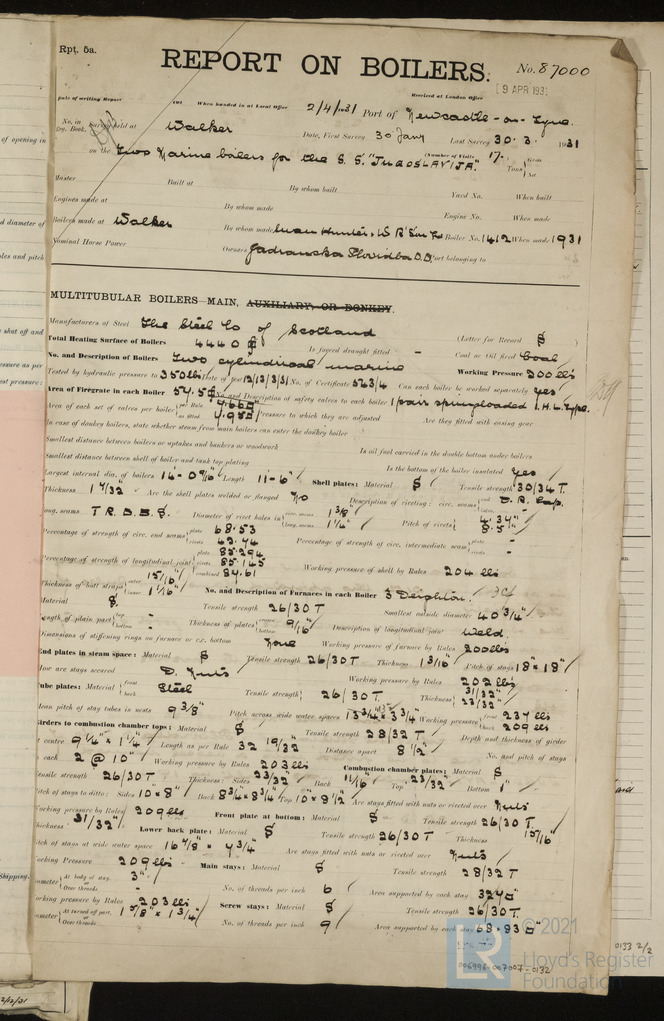 Rpt. 5a.
REPORT ON BOILERS.
No. 87000
Received at London Office 9 APR 193
Date of writing Report When handed in at Local Office 2/4/1931 Port of Newcastle-on-Tyne.
No. in Reg. Book. Survey held at Walker Date, First Survey 30 Jany Last Survey 30. 3. 1931
on the Two Marine boilers for the S.S. "JUGOSLAVIJA." (Number of Visits 17. ) Tons { Gross Net
Master Built at By whom built Yard No. When built
Engines made at By whom made Engine No. When made
Boilers made at Walker By whom made Swan Hunter, & W R Son Ld Boiler No. 1412 When made 1931
Nominal Horse Power Owners Port belonging to
MULTITUBULAR BOILERS MAIN, AUXILIARY, OR DONKEY.
Manufacturers of Steel The Steel Co of Scotland (Letter for Record S )
Total Heating Surface of Boilers 4440 Is forced draught fitted - Coal or Oil fired Coal
No. and Description of Boilers Two cylindrical marine Working Pressure 200 lbs
Tested by hydraulic pressure to 350 lbs Date of test 12/13/3/31 No. of Certificate 5634 Can each boiler be worked separately yes
Area of Firegrate in each Boiler 54.5 No. and Description of safety valves to each boiler 1 pair spring loaded I.H.L. type.
Area of each set of valves per boiler { per Rule as fitted Pressure to which they are adjusted Are they fitted with easing gear
In case of donkey boilers, state whether steam from main boilers can enter the donkey boiler
Smallest distance between boilers or uptakes and bunkers or woodwork Is oil fuel carried in the double bottom under boilers
Smallest distance between shell of boiler and tank top plating Is the bottom of the boiler insulated yes
Largest internal dia. of boilers 14'-0 9/16" Length 11'-6" Shell plates: Material S Tensile strength 30/34 T.
Thickness 1 7/32" Are the shell plates welded or flanged No Description of riveting: circ. seams { end D.R. Lap.
long. seams T R. D. B. S. Diameter of rivet holes in { circ. seams 1 3/8" long. seams 1 1/4" Pitch of rivets { 4.34" 8.5"
Percentage of strength of circ. end seams { plate 68.53 rivets 43.74 Percentage of strength of circ. intermediate seam { plate - rivets -
Percentage of strength of longitudinal joint { plate 85.294 rivets 85.145 combined 89.61 Working pressure of shell by Rules 204 lbs
Thickness of butt straps { outer 15/16" inner 1 1/16" No. and Description of Furnaces in each Boiler 3 Deighton.
Material S. Tensile strength 26/30 T Smallest outside diameter 40 3/16"
Length of plain part { top bottom Thickness of plates { crown bottom 9/16" Description of longitudinal joint Weld.
Dimensions of stiffening rings on furnace or c.c. bottom None Working pressure of furnace by Rules 200 lbs
End plates in steam space: Material S Tensile strength 26/30 T Thickness 1 3/16" Pitch of stays 18" x 18"
How are stays secured D. Nuts Working pressure by Rules 202 lbs
Tube plates: Material { front back Steel Tensile strength 26/30 T Thickness { 31/32" 23/32"
Mean pitch of stay tubes in nests 9 3/8" Pitch across wide water spaces 13 3/4" x 3 3/4" Working pressure { front 237 lbs back 209 lbs
Girders to combustion chamber tops: Material S Tensile strength 28/32 T Depth and thickness of girder
at centre 9 1/4" x 1 1/4" Length as per Rule 32 19/32" Distance apart 8 1/2" No. and pitch of stays
in each 2 @ 10" Working pressure by Rules 203 lbs Combustion chamber plates: Material S
Tensile strength 26/30 T Thickness: Sides 23/32" Back 11/16" Top 23/32" Bottom 1"
Pitch of stays to ditto: Sides 10" x 8" Back 8 3/4" x 8 3/4" Top 10" x 8 1/2" Are stays fitted with nuts or riveted over Nuts
Working pressure by Rules 209 lbs Front plate at bottom: Material S Tensile strength 26/30 T.
Thickness 31/32" Lower back plate: Material S Tensile strength 26/30 T Thickness 15/16"
Pitch of stays at wide water space 16 7/8" x 4 3/4" Are stays fitted with nuts or riveted over Nuts
Working Pressure 209 lbs Main stays: Material S Tensile strength 28/32 T
Diameter { At body of stay, Over threads 3" No. of threads per inch 6 Area supported by each stay 324 □"
Working pressure by Rules 203 lbs Screw stays: Material S Tensile strength 26/30 T.
Diameter { At turned off part, Over threads 1 5/8" x 1 3/4" No. of threads per inch 9 Area supported by each stay 68.93 □"
© 2021
Lloyd's Register
Foundation
006996-007007-0132
0133 2/2